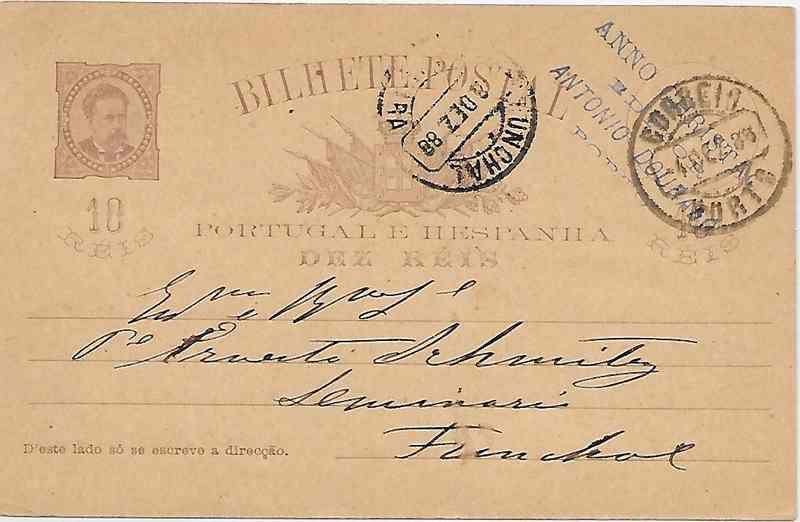 BILHETE POSTAL
10
REIS
PORTUGAL E HESPANHA
DEZ RÉIS
REIS
FUNCHAL
DEZ 86
CORREIO
PORTO
ANNO
ANTONIO
Ernesto Schmitz
Seminario
Funchal
D'este lado só se escreve a direcção.